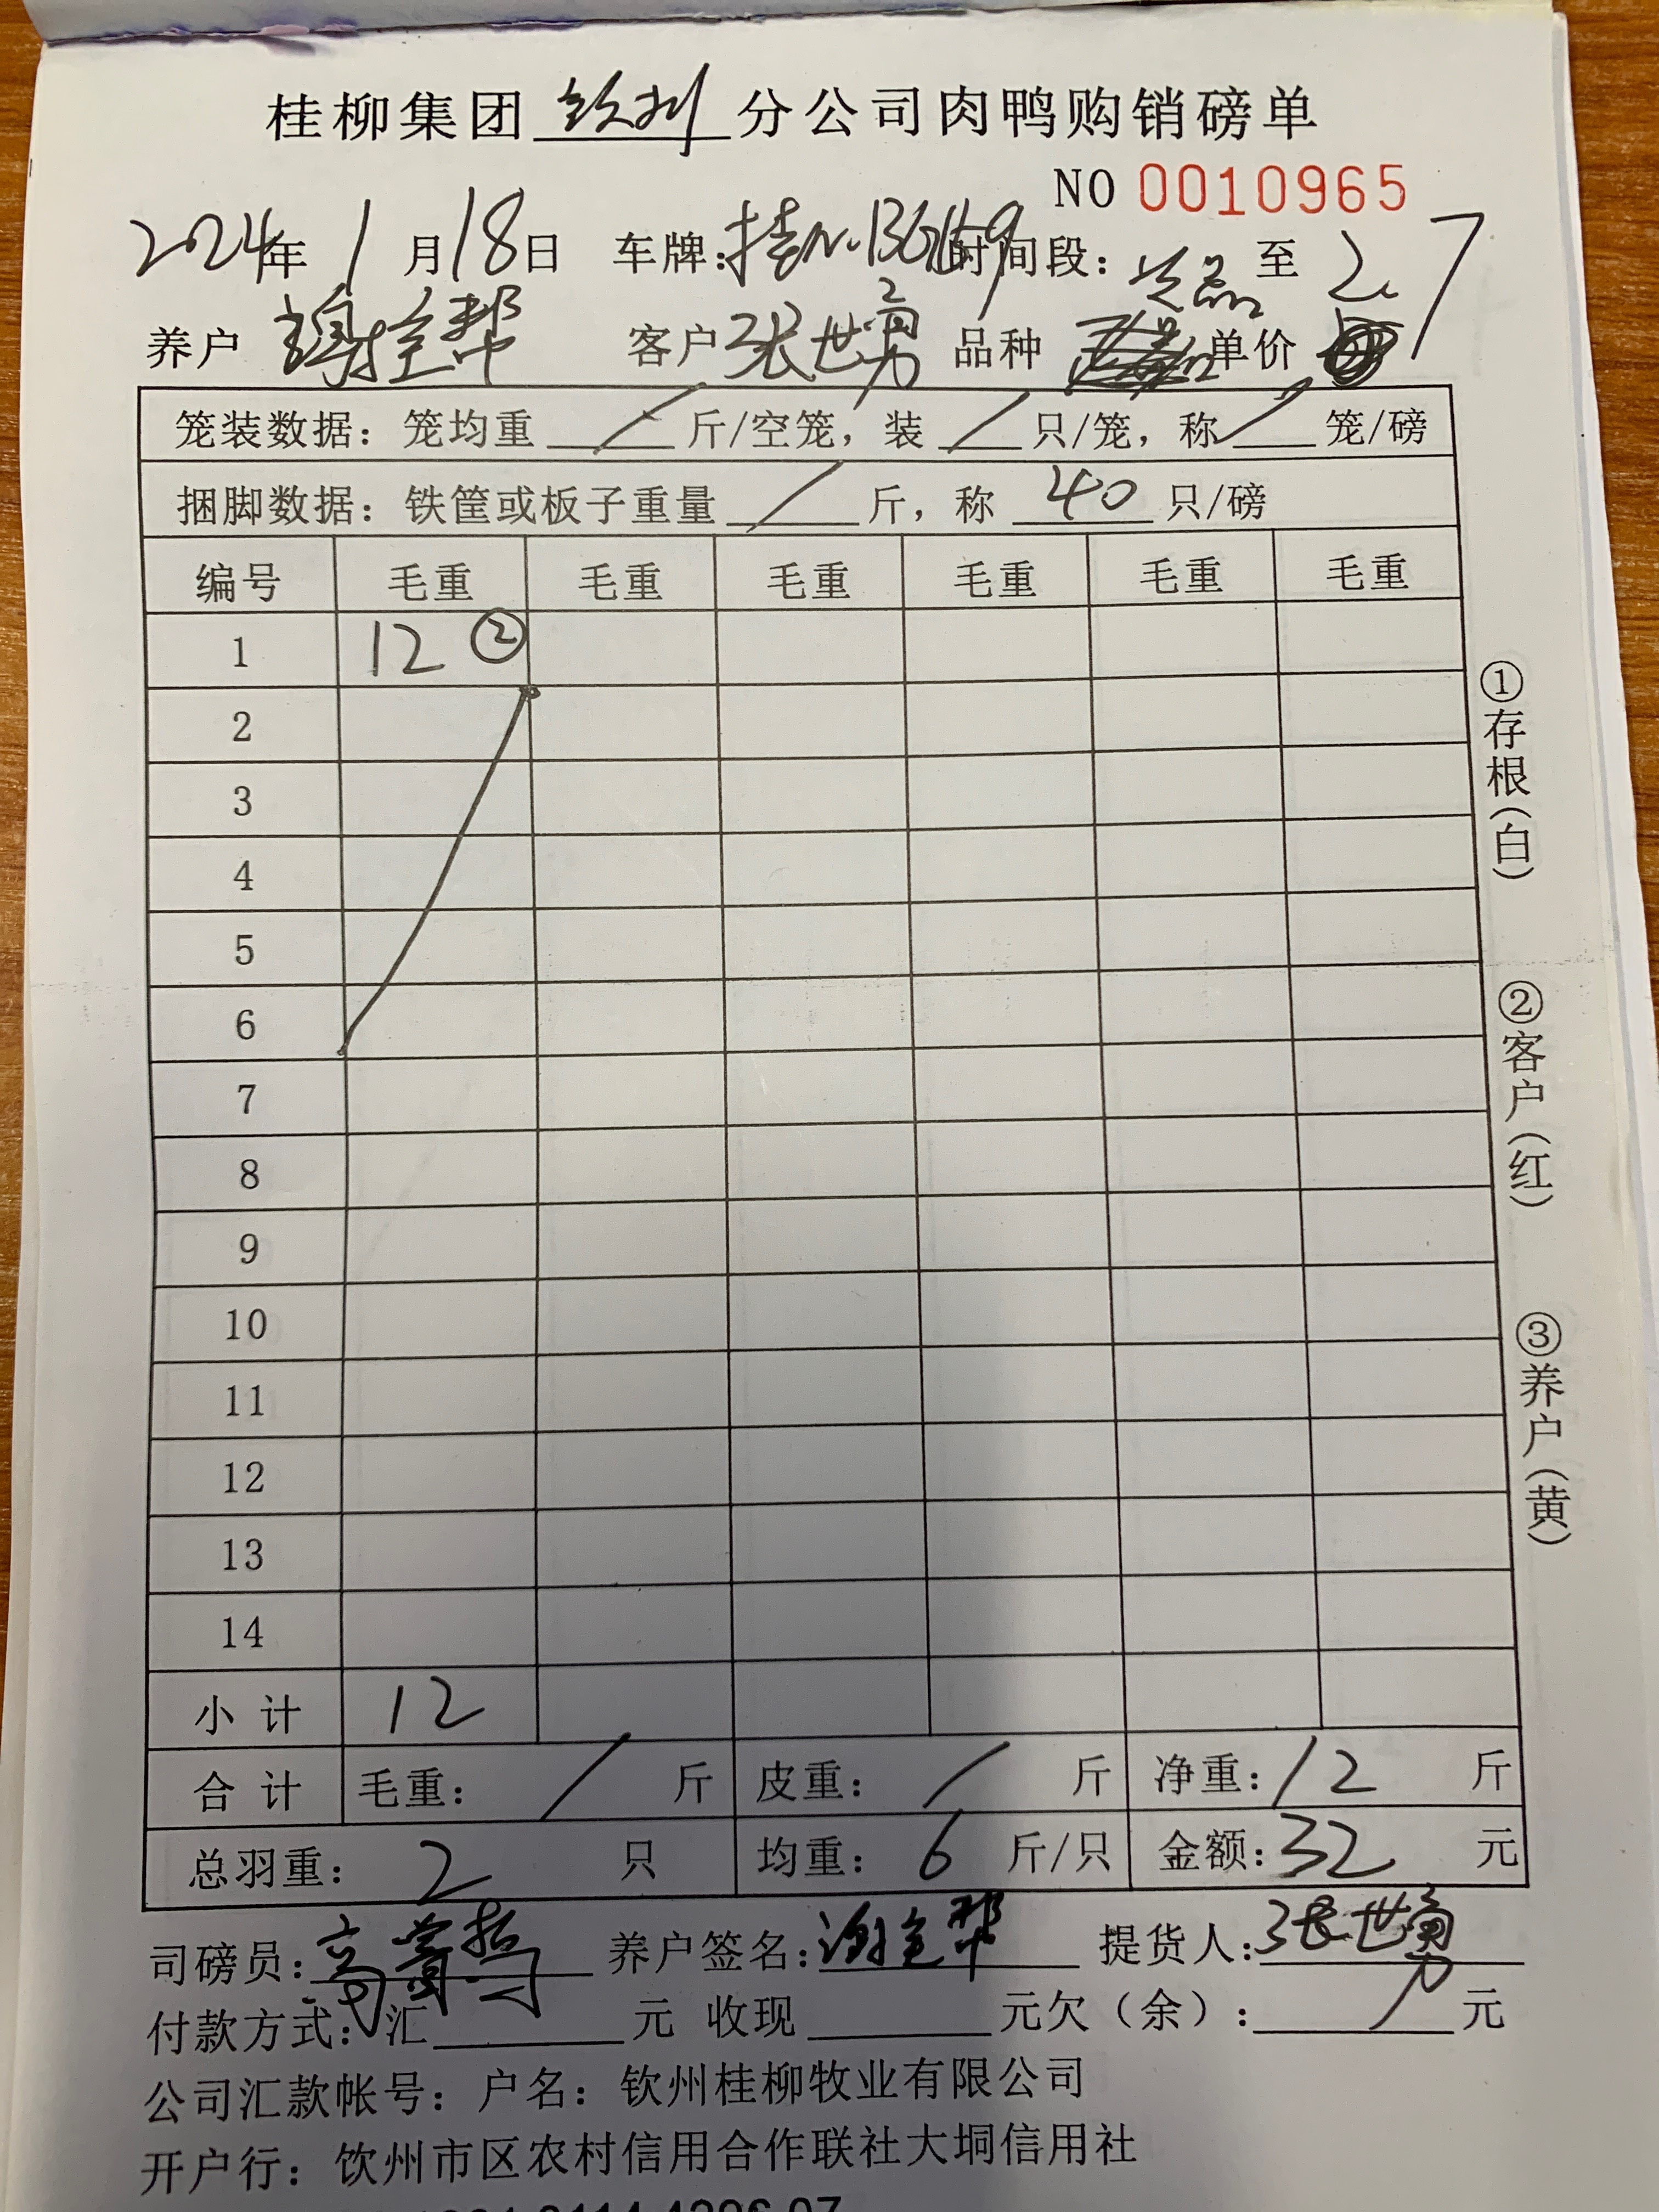 桂柳集团 钦州 分公司肉鸭购销磅单
NO 0010965
2024年 1 月 18 日 车牌: 时间段: 至
养户 客户 张世勇 品种 次品 单价 2.7
笼装数据: 笼均重 / 斤/空笼, 装 / 只/笼, 称 / 笼/磅
捆脚数据: 铁筐或板子重量 / 斤, 称 40 只/磅
编号 毛重 毛重 毛重 毛重 毛重 毛重
1 12 ②
2
3
4
5
6
7
8
9
10
11
12
13
14
小计 12
合计 毛重: / 斤 皮重: / 斤 净重: 12 斤
总羽重: 2 只 均重: 6 斤/只 金额: 32 元
司磅员: 养户签名: 提货人: 张世勇
付款方式: 汇 元 收现 元欠(余): 元
公司汇款帐号: 户名: 钦州桂柳牧业有限公司
开户行: 钦州市区农村信用合作联社大垌信用社
①存根(白)
②客户(红)
③养户(黄)